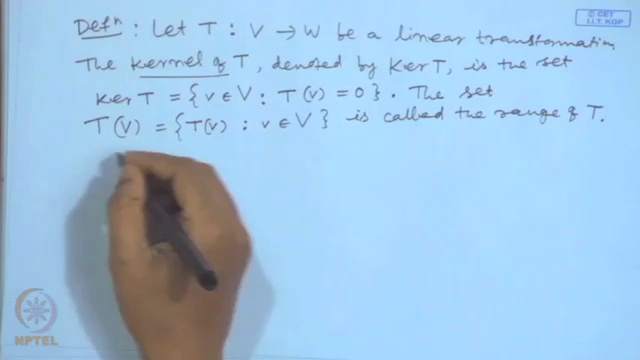 © CET
I.I.T. KGP
Defⁿ : Let T : V → W be a linear transformation
The Kernel of T, denoted by Ker T, is the set
Ker T = { v ∈ V : T(v) = 0 } . The set
T(V) = { T(v) : v ∈ V } is called the range of T.
NPTEL